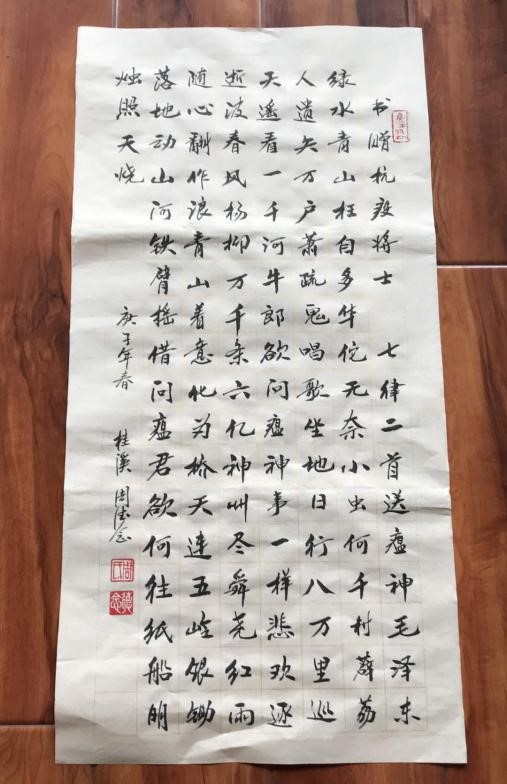 书赠抗疫将士 七律二首送瘟神毛泽东
绿水青山枉自多华佗无奈小虫何千村薜荔
人遗矢万户萧疏鬼唱歌坐地日行八万里巡
天遥看一千河牛郎欲问瘟神事一样悲欢逐
逝波春风杨柳万千条六亿神州尽舜尧红雨
随心翻作浪青山着意化为桥天连五岭银锄
落地动山河铁臂摇借问瘟君欲何往纸船明
烛照天烧 庚子年春 桂溪 周德念